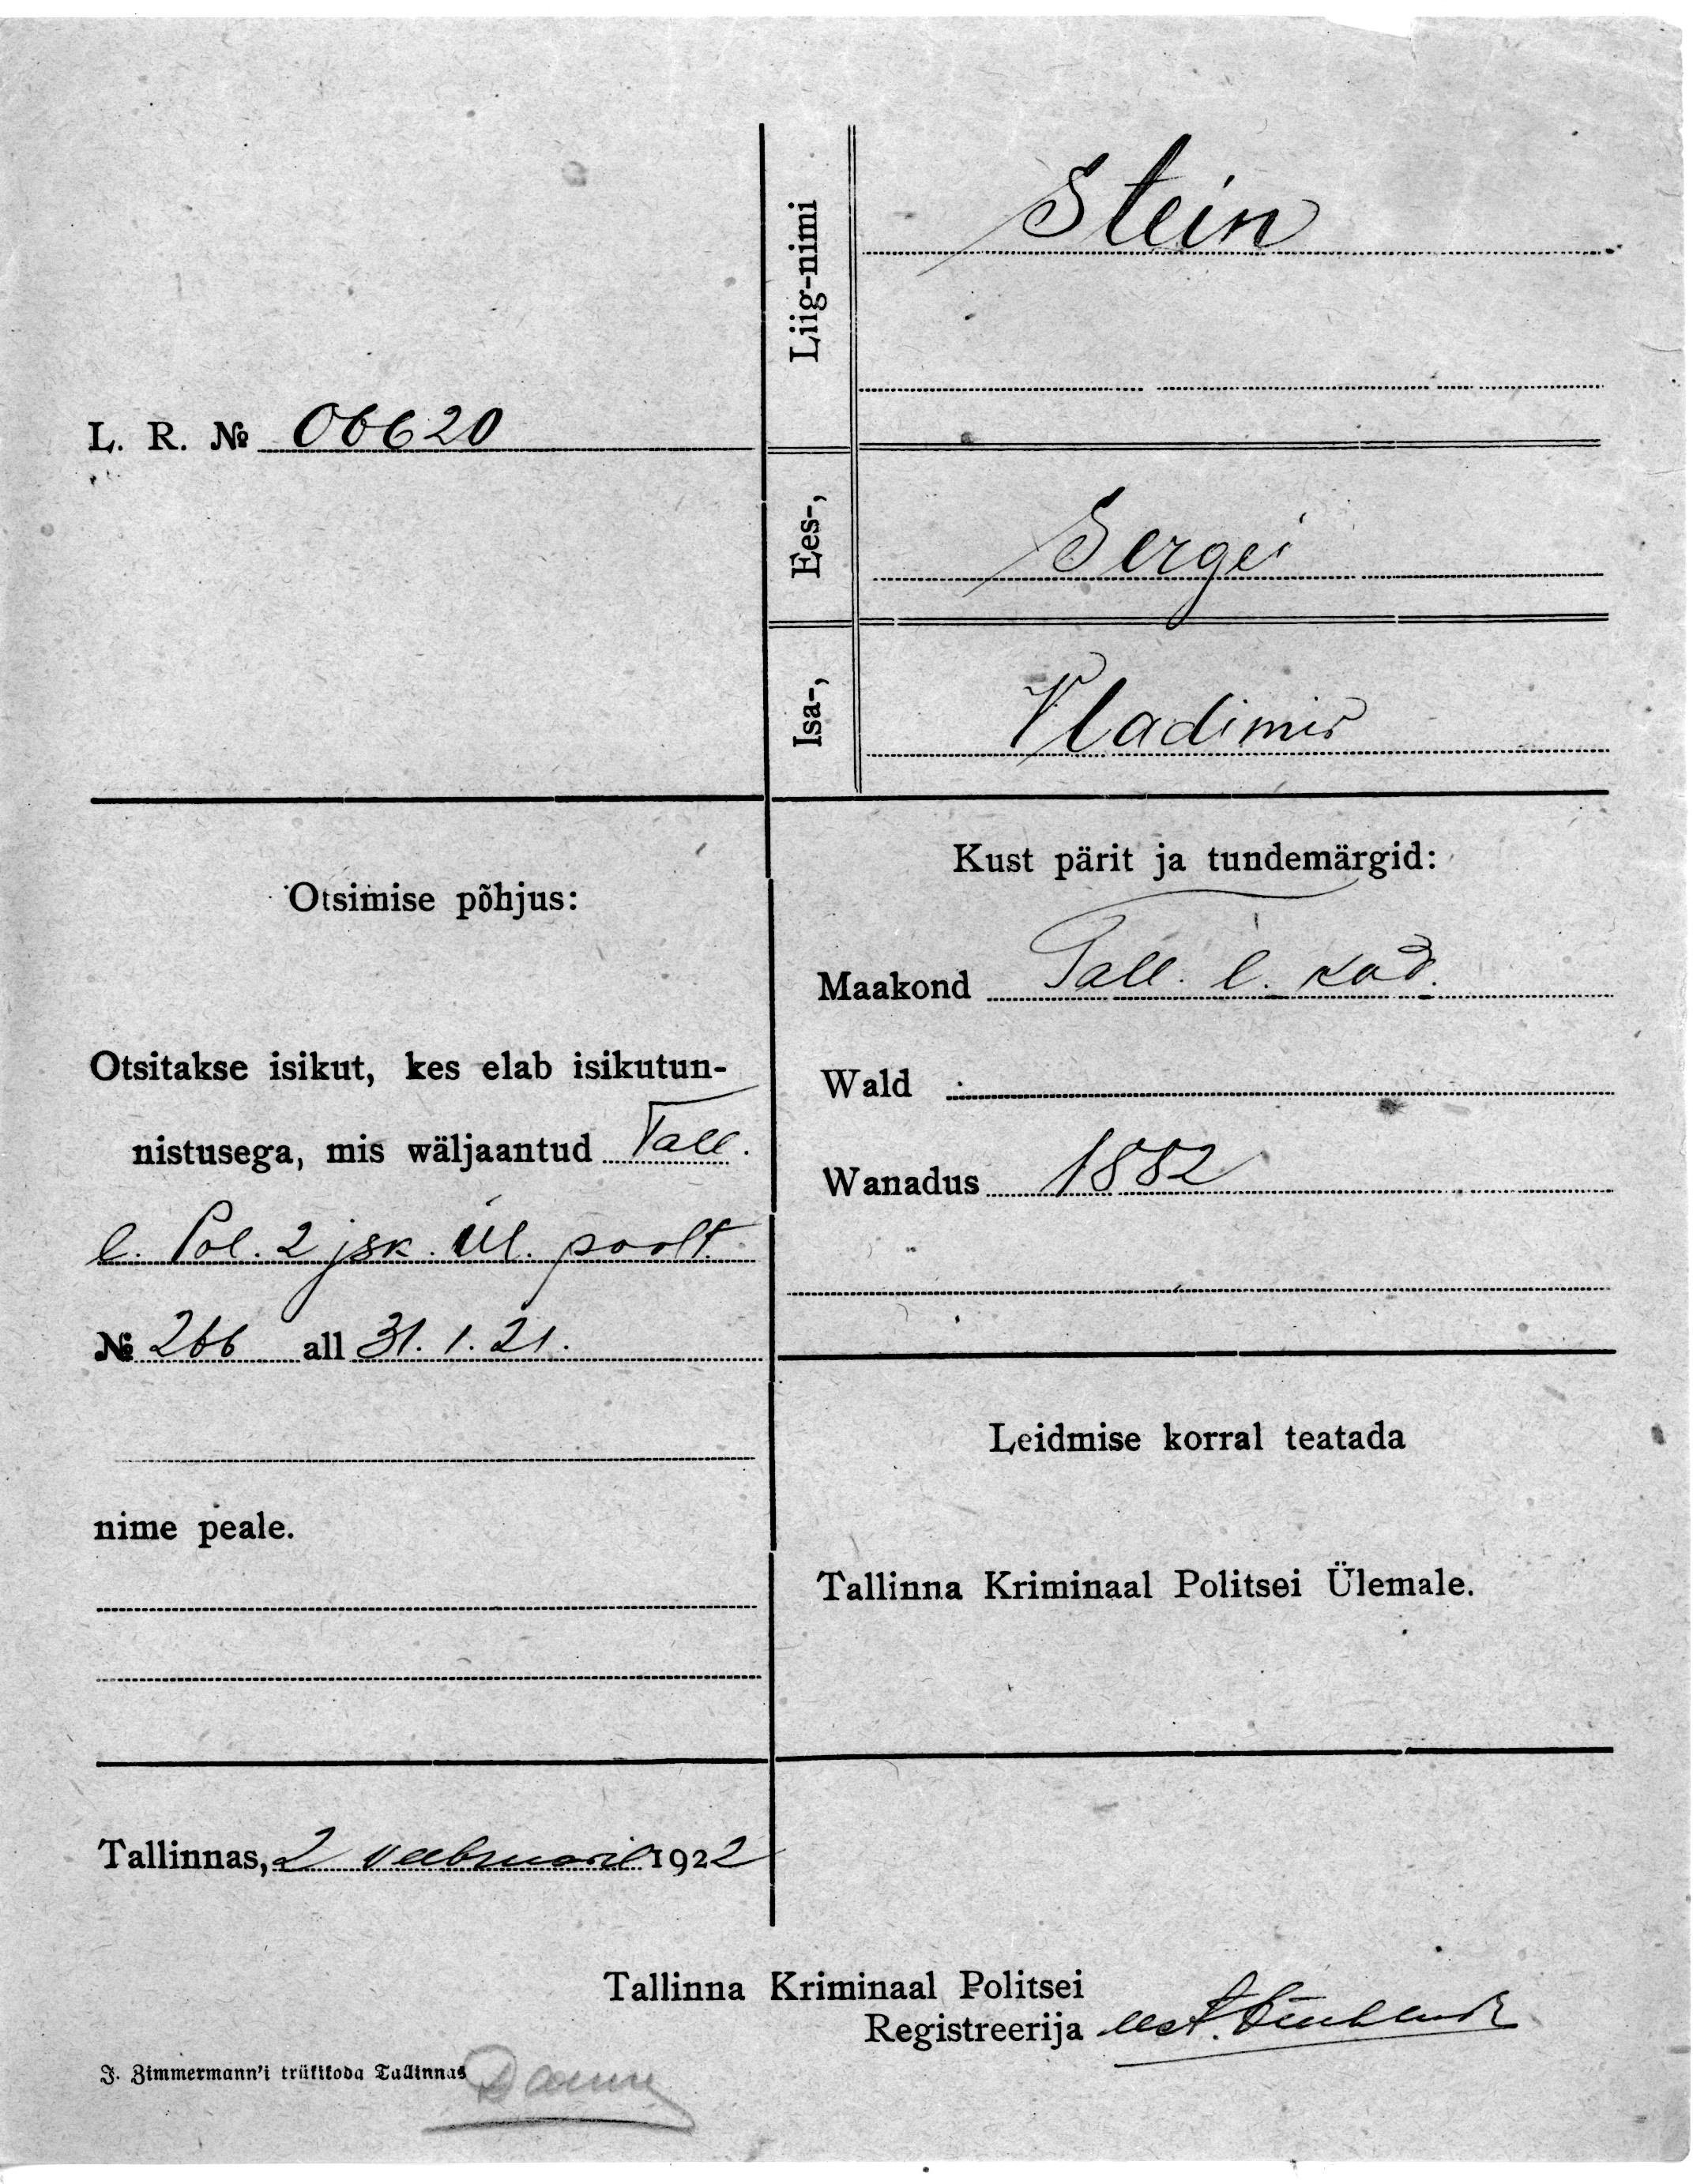 Liig-nimi
Stein
L. R. № 06620
Ees-,
Sergei
Isa-,
Vladimir
Otsimise põhjus:
Otsitakse isikut, kes elab isikutun-
nistusega, mis wäljaantud Tall.
l. Pol. 2 jsk. Ül. poolt
№ 266 all 31. 1. 21.
nime peale.
Kust pärit ja tundemärgid:
Maakond Tall. l. kod.
Wald
Wanadus 1882
Leidmise korral teatada
Tallinna Kriminaal Politsei Ülemale.
Tallinnas, 2 veebruaril 1922
Tallinna Kriminaal Politsei
Registreerija
J. Zimmermann'i trükikoda Tallinnas